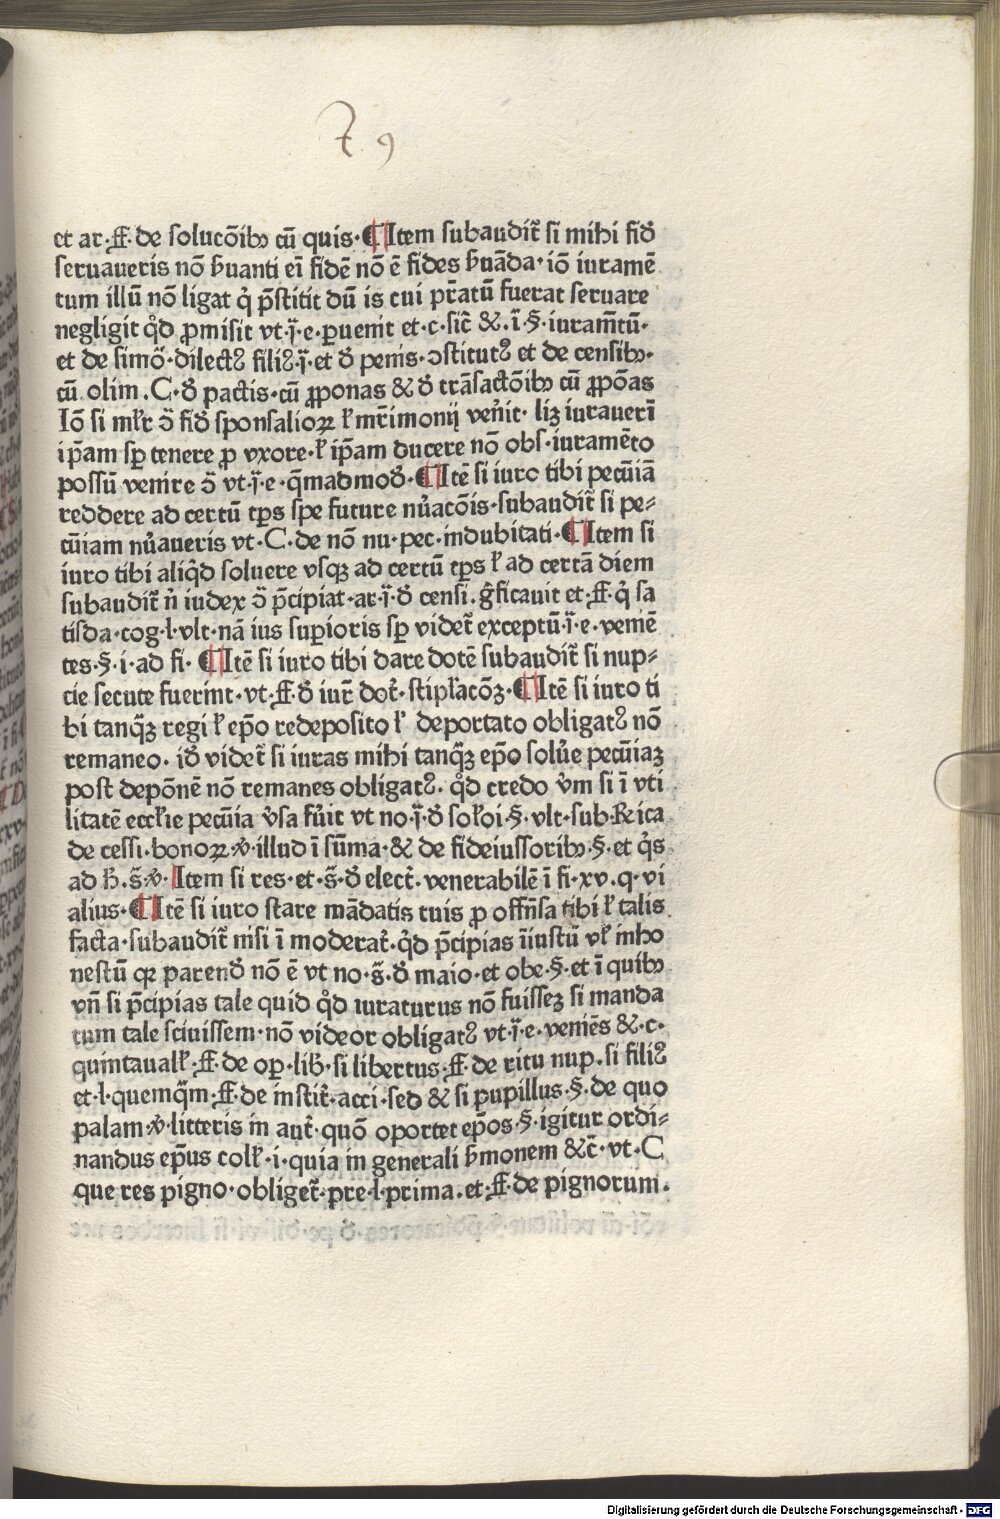 7 9
et ar·ff·de solucōibꝫ cū quis·¶Item subaudit̃ si mihi fid̉
seruaueris nō ẜuanti ei fidē nō ē fides ẜuāda·iō iuramē
tum illū nō ligat q̇ p̄stitit dū is cui p̄ratū fuerat seruare
negligit qd̉ ꝓmisit vt·ī·e·ꝑuenit et·c·sic̃ &·ī·§·iuram̄tū·
et de simō·dilectꝰ filiꝰ·ī·et d̉ penis·ↄstitutꝰ et de censibꝫ·
cū olim·C·d̉ pactis·cū ꝓponas & d̉ trāsactōibꝫ cū ꝓpōas
Iō si ml̃r ↄ̄ fid̉ sponsalioꝝ ł mr̄imonij ven̉it· lꝫ iurauerī
ip̄am sꝑ tenere ꝓ vxore·ł ip̄am ducere nō obs·iuramēto
possū venire ↄ̄ vt·ī·e·q̄madmod̉·¶Itē si iuro tibi pecūiā
reddere ad certū tp̄s spe future nu̇acōis·subaudit̃ si pe⸗
cūiam nu̇aueris vt·C·de nō nu·pec·indubitati·¶Item si
iuro tibi aliq̇d soluere vsqꝫ ad certū tp̄s ł ad certā diem
subaudit̃ n̉ iudex ↄ̄ p̄cipiat·ar·ī·d̉ censi·g̉ficauit et·ff·q̇ sa
tisda·cog·l·vlt·nā ius suꝑioris sꝑ videt̃ exceptū·ī·e·veniē
tes·§·i·ad fi·¶Itē si iuro tibi dare dotē subaudit̃ si nup⸗
cie secute fuerint·vt·ff·d̉ iur̃ dot̃·stipl̃acōꝫ·¶Itē si iuro ti
bi tanqꝫ̄ regi ł ep̄o redeposito ł deportato obligatꝰ nō
remaneo· id̉ videt̃ si iuras mihi tanqꝫ̄ ep̄o solu̇e pecūiaꝫ
post depōnē nō remanes obligatꝰ· qd̉ credo v̉m si ī vti
litatē eccl̃ie pecūia v̉sa fu̇it vt no·ī·d̉ sol̃oi·§·vlt·sub·Rica
de cessi·bonoꝝ·℣·illud ī sūma·& de fideiussoribꝫ·§·et q̇s
ad h̉·s̄·℣·Item si res·et·s̄·d̉ elect̃·venerabilē ī fi·xv·q·vi
alius·¶Itē si iuro stare mādatis tuis ꝓ offn̄sa tibi ł talis
facta·subaudit̃ nisi ī moderat̃·qd̉ p̄cipias īiustū vł inho
nestū qꝛ parend̉ nō ē vt no·s̄·d̉ maio·et obe·§·et ī quibꝫ
vn̄ si p̄cipias tale quid qd̉ iuraturus nō fuisseꝫ si manda
tum tale sciuissem·nō videor obligatꝰ vt·ī·e·veniēs &·c·
quintauall̃·ff·de oꝑ·lib̉·si libertus·ff·de ritu nup·si filiꝰ
et·l·quemq̄m·ff·de instit̃·acti·sed & si pupillus·§·de quo
palam·℣·litteris in aut̃·quō oportet ep̄os·§·igitur ordi⸗
nandus ep̄us coll̃·i·quia in generali ẜmonem &c̃·vt·C
que res pigno·obliget̃·pre·l·prima·et·ff·de pignorum·
Digitalisierung gefördert durch die Deutsche Forschungsgemeinschaft - DFG